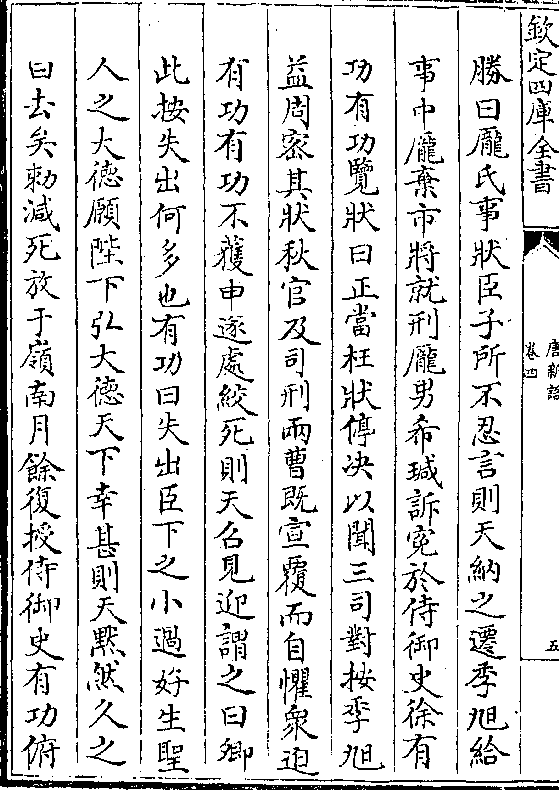 欽定四庫全書
唐新語
卷四
五
勝曰龎氏事狀臣子所不忍言則天納之遷季旭給
事中龎棄市將就刑龎男希瑊訴寃於侍御史徐有
功有功覽狀曰正當枉狀停决以聞三司對按季旭
益周宻其狀秋官及司刑兩曹既宣覆而自懼衆迫
有功有功不獲申遂處絞死則天召見迎謂之曰卿
此按失出何多也有功曰失出臣下之小過好生聖
人之大德願陛下弘大德天下幸甚則天黙然久之
曰去矣勅減死放于嶺南月餘復授侍御史有功俯